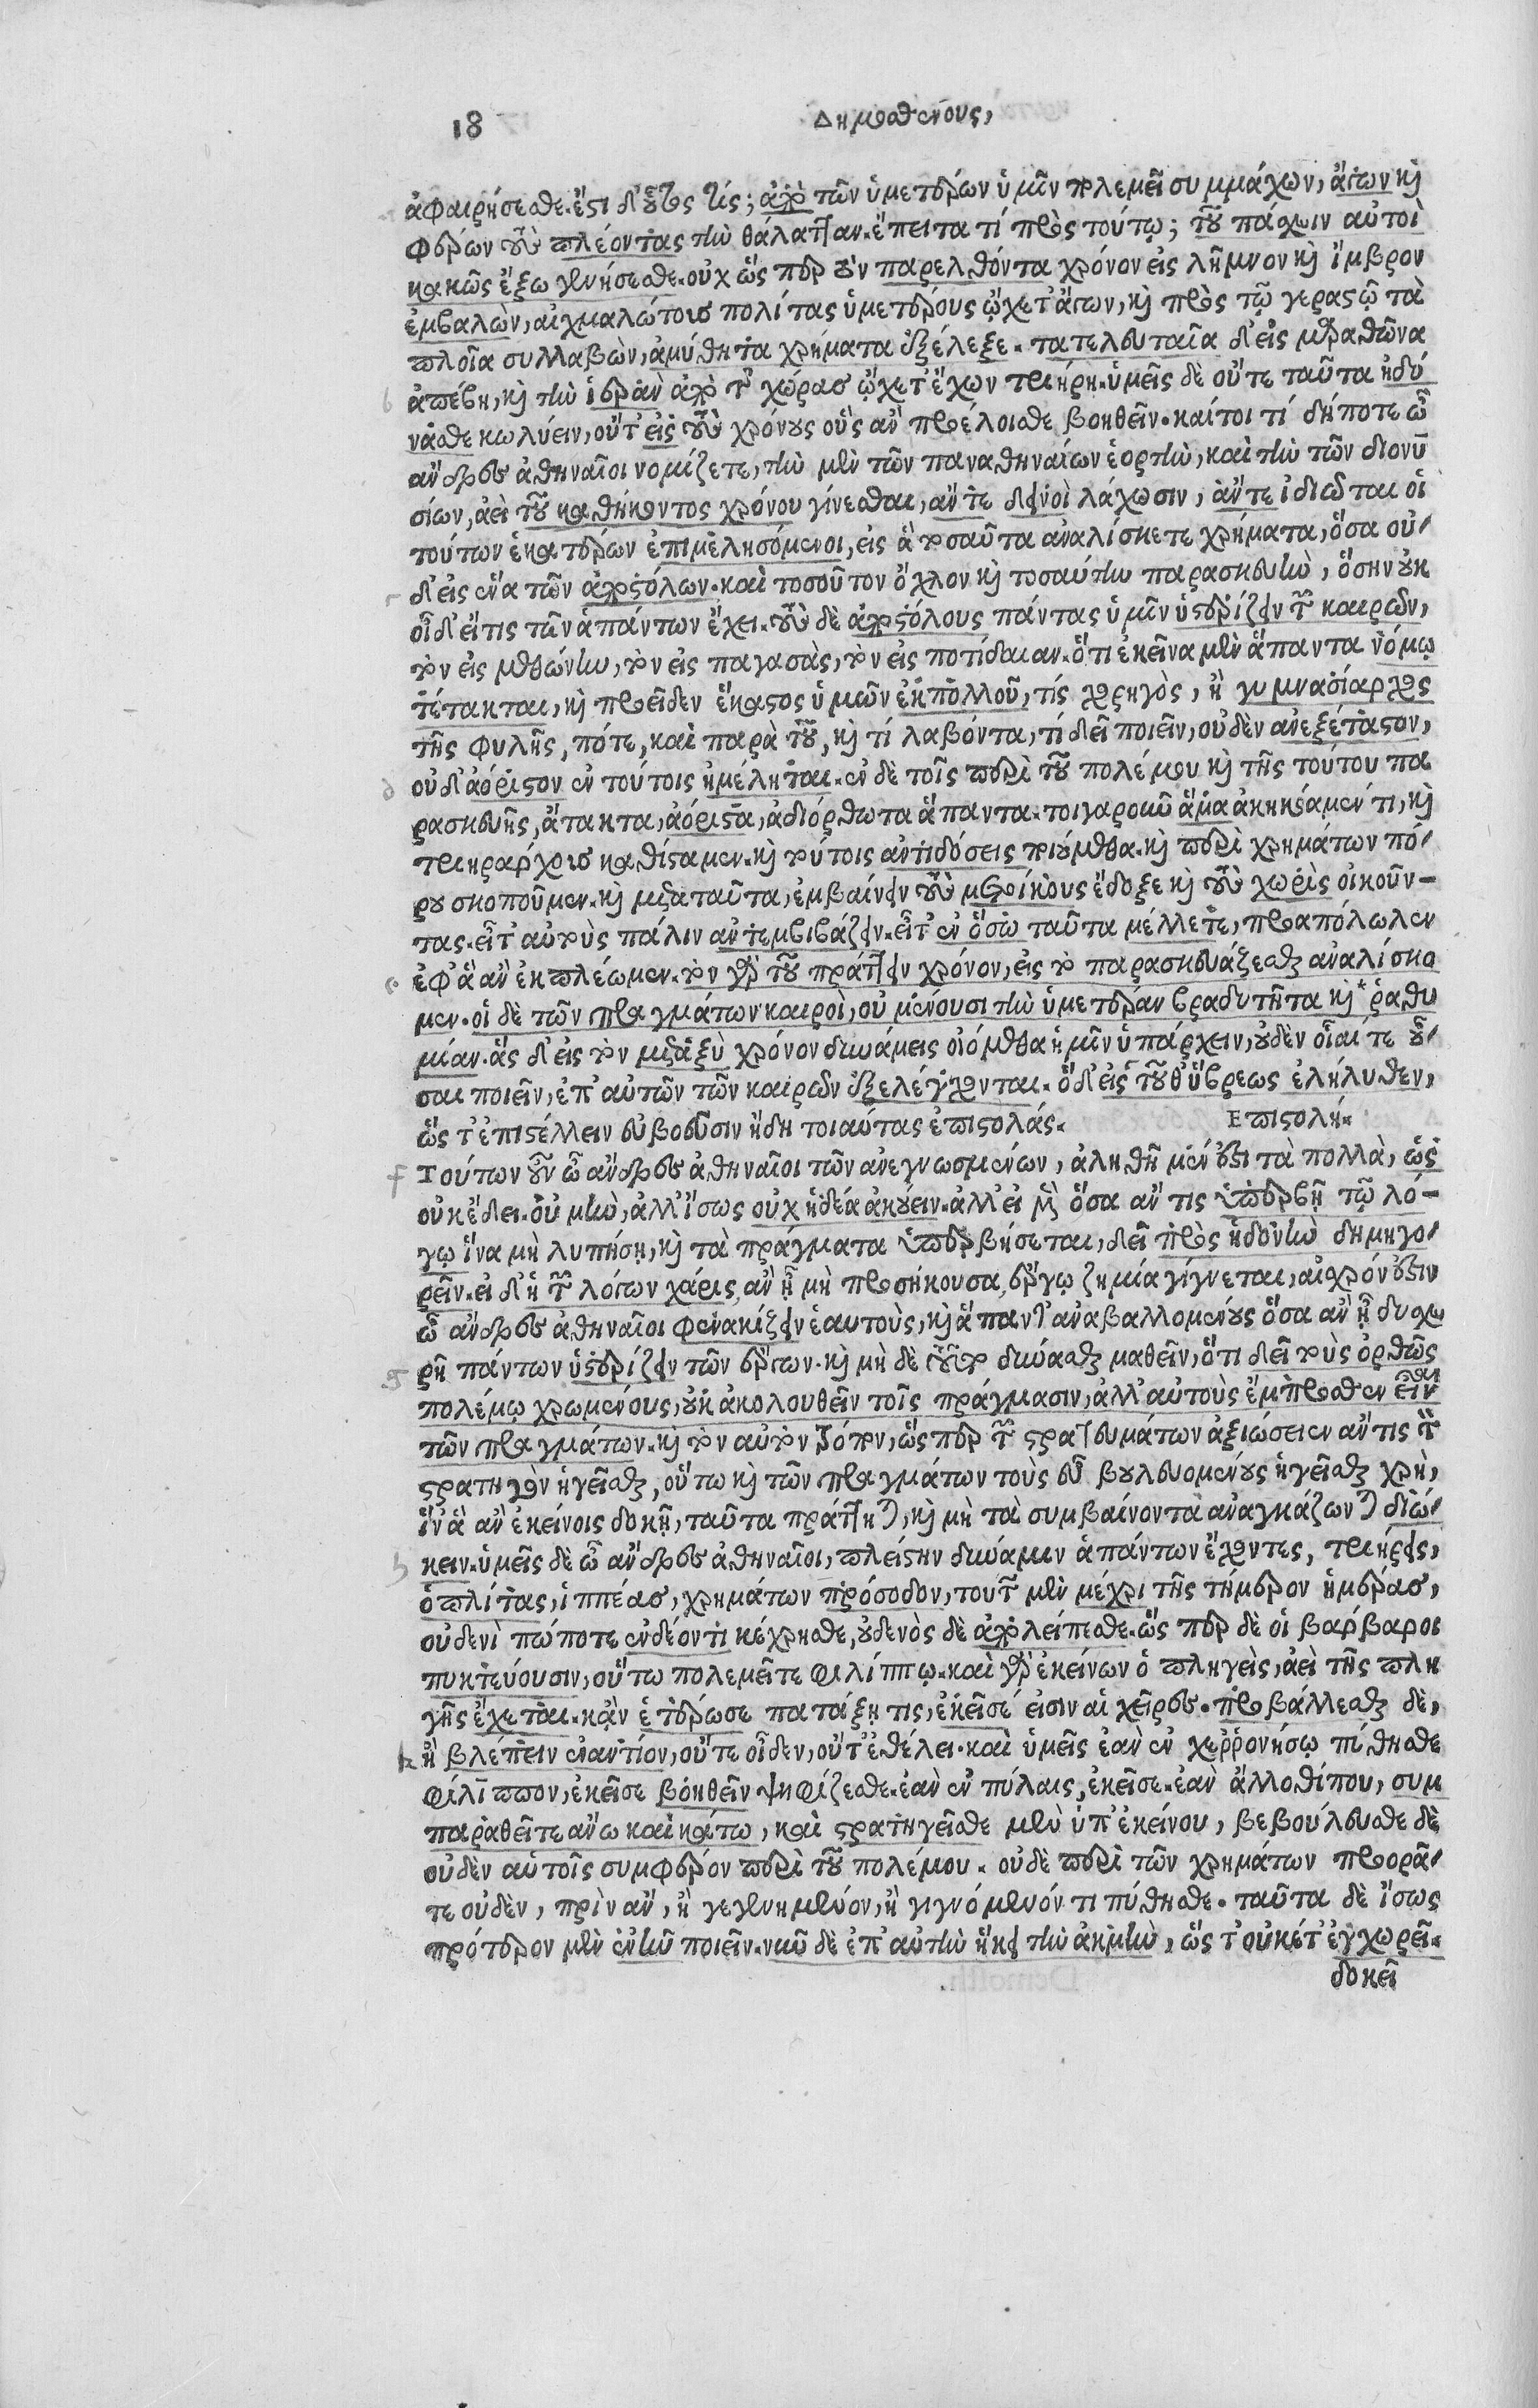 18 Δημοσθένους,
ἀφαιρήσεσθε. ἔστι δ' οὗτος τίς; ἀπὸ τῶν ὑμετέρων ὑμῖν πολεμεῖ συμμάχων, ἄγων καὶ
φέρων τοὺς πλέοντας τὴν θάλατταν. ἔπειτα τί πρὸς τούτῳ; τοῦ πάσχειν αὐτοὶ
κακῶς ἔξω γενήσεσθε. οὐχ ὥσπερ τὸν παρελθόντα χρόνον εἰς λῆμνον καὶ ἴμβρον
ἐμβαλὼν, αἰχμαλώτους πολίτας ὑμετέρους ᾤχετ' ἄγων, καὶ πρὸς τῷ γεραιστῷ τὰ
πλοῖα συλλαβὼν, ἀμύθητα χρήματα ἐξέλεξε. τατελευταῖα δ' εἰς μαραθῶνα
ἀπέβη, καὶ τὴν ἱερὰν ἀπὸ τῆς χώρας ᾤχετ' ἔχων τριήρη. ὑμεῖς δὲ οὔτε ταῦτα ἠδύ
νασθε κωλύειν, οὔτ' εἰς τοὺς χρόνους οὓς ἂν προέλοισθε βοηθεῖν. καίτοι τί δήποτε ὦ
ἄνδρες ἀθηναῖοι νομίζετε, τὴν μὲν τῶν παναθηναίων ἑορτὴν, καὶ τὴν τῶν διονυ
σίων, ἀεὶ τοῦ καθήκοντος χρόνου γίνεσθαι, ἄν τε δεινοὶ λάχωσιν, ἄν τε ἰδιῶται οἱ
τούτων ἑκατέρων ἐπιμελησόμενοι, εἰς ἃ τοσαῦτα ἀναλίσκετε χρήματα, ὅσα οὐ-
δ' εἰς ἕνα τῶν ἀποστόλων. καὶ τοσοῦτον ὄχλον καὶ τοσαύτην παρασκευὴν, ὅσην οὐκ
οἶδ' εἴ τις τῶν ἁπάντων ἔχει. τοὺς δὲ ἀποστόλους πάντας ὑμῖν ὑστερίζειν τῶν καιρῶν,
τὸν εἰς μεθώνην, τὸν εἰς παγασὰς, τὸν εἰς ποτίδαιαν. ὅτι ἐκεῖνα μὲν ἅπαντα νόμῳ
τέτακται, καὶ προεῖδεν ἕκαστος ὑμῶν ἐκπολλοῦ, τίς χορηγὸς, ἢ γυμνασίαρχος
τῆς φυλῆς, πότε, καὶ παρὰ τοῦ, καὶ τί λαβόντα, τί δεῖ ποιεῖν, οὐδὲν ἀνεξέταστον,
οὐδ' ἀόριστον ἐν τούτοις ἠμέληται. ἐν δὲ τοῖς περὶ τοῦ πολέμου καὶ τῆς τούτου πα
ρασκευῆς, ἄτακτα, ἀόριστα, ἀδιόρθωτα ἅπαντα. τοιγαροῦν ἅμα ἀκηκόαμέν τι, καὶ
τριηράρχους καθίσταμεν. καὶ τούτοις ἀντιδόσεις ποιούμεθα. καὶ περὶ χρημάτων πό-
ρου σκοποῦμεν. καὶ μετὰ ταῦτα, ἐμβαίνειν τοὺς μετοίκους ἔδοξε καὶ τοὺς χωρὶς οἰκοῦν-
τας. εἶτ' αὐτοὺς πάλιν ἀντεμβιβάζειν. εἶτ' ἐν ὅσῳ ταῦτα μέλλετε, προαπόλωλεν
ἐφ' ἃ ἂν ἐκπλέωμεν. τὸν γὰρ τοῦ πράττειν χρόνον, εἰς τὸ παρασκευάζεσθαι ἀναλίσκο
μεν. οἱ δὲ τῶν πραγμάτων καιροὶ, οὐ μένουσι τὴν ὑμετέραν βραδυτῆτα καὶ* ῥαθυ
μίαν. ἃς δ' εἰς τὸν μεταξὺ χρόνον δυνάμεις οἰόμεθα ἡμῖν ὑπάρχειν, οὐδὲν οἷαί τε οὖ-
σαι ποιεῖν, ἐπ' αὐτῶν τῶν καιρῶν ἐξελέγχονται. ὁ δ' εἰς τοῦθ' ὕβρεως ἐλήλυθεν,
ὥς τ' ἐπιστέλλειν εὐβοεῦσιν ἤδη τοιαύτας ἐπιστολάς. Επιστολή.
Τούτων οὖν ὦ ἄνδρες ἀθηναῖοι τῶν ἀνεγνωσμένων, ἀληθῆ μέν ἐστι τὰ πολλὰ, ὡς
οὐκ ἔδει. οὐ μὴν, ἀλλ' ἴσως οὐχ ἡδέα ἀκούειν. ἀλλ' εἰ μὲν ὅσα ἄν τις ὑπερβῇ τῷ λό-
γῳ ἵνα μὴ λυπήσῃ, καὶ τὰ πράγματα ὑπερβήσεται, δεῖ πρὸς ἡδονὴν δημηγο-
ρεῖν. εἰ δ' ἡ τῶν λόγων χάρις, ἂν ᾖ μὴ προσήκουσα, ἔργῳ ζημία γίγνεται, αἰσχρόν ἐστιν
ὦ ἄνδρες ἀθηναῖοι φενακίζειν ἑαυτοὺς, καὶ ἅπαντ' ἀναβαλλομένους ὅσα ἂν ᾖ δυσχε
ρῆ πάντων ὑστερίζειν τῶν ἔργων. καὶ μὴ δὲ τοῦτο δύνασθαι μαθεῖν, ὅτι δεῖ τοὺς ὀρθῶς
πολέμῳ χρωμένους, οὐκ ἀκολουθεῖν τοῖς πράγμασιν, ἀλλ' αὐτοὺς ἔμπροσθεν εἶναι
τῶν πραγμάτων. καὶ τὸν αὐτὸν τρόπον, ὥσπερ τῶν στρατευμάτων ἀξιώσειεν ἄν τις τὸν
στρατηγὸν ἡγεῖσθαι, οὕτω καὶ τῶν πραγμάτων τοὺς εὖ βουλευομένους ἡγεῖσθαι χρὴ,
ἵν' ἃ ἂν ἐκείνοις δοκῇ, ταῦτα πράττηται, καὶ μὴ τὰ συμβαίνοντα ἀναγκάζωνται διώ-
κειν. ὑμεῖς δὲ ὦ ἄνδρες ἀθηναῖοι, πλείστην δύναμιν ἁπάντων ἔχοντες, τριήρεις,
ὁπλίτας, ἱππέας, χρημάτων πρόσοδον, τούτων μὲν μέχρι τῆς τήμερον ἡμέρας,
οὐδενὶ πώποτε ἐνδέοντι κέχρησθε, οὐδενὸς δὲ ἀπολείπεσθε. ὥσπερ δὲ οἱ βαρβαροι
πυκτεύουσιν, οὕτω πολεμεῖτε φιλίππῳ. καὶ γὰρ ἐκείνων ὁ πληγεὶς, ἀεὶ τῆς πλη
γῆς ἔχεται. κἂν ἑτέρωσε πατάξῃ τις, ἐκεῖσέ εἰσιν αἱ χεῖρες. προβάλλεσθαι δὲ,
ἢ βλέπειν ἐναντίον, οὔτε οἶδεν, οὔτ' ἐθέλει. καὶ ὑμεῖς ἐὰν ἐν χερρονήσῳ πύθησθε
φίλιππον, ἐκεῖσε βοηθεῖν ψηφίζεσθε. ἐὰν ἐν πύλαις, ἐκεῖσε. ἐὰν ἄλλοθί που, συμ
παραθεῖτε ἄνω καὶ κάτω, καὶ στρατηγεῖσθε μὲν ὑπ' ἐκείνου, βεβούλευσθε δὲ
οὐδὲν αὐτοῖς συμφέρον περὶ τοῦ πολέμου. οὐδὲ περὶ τῶν χρημάτων προορᾶ-
τε οὐδὲν, πρὶν ἂν, ἢ γεγενημένον, ἢ γιγνόμενόν τι πύθησθε. ταῦτα δὲ ἴσως
πρότερον μὲν ἐνῆν ποιεῖν. νῦν δὲ ἐπ' αὐτὴν ἥκει τὴν ἀκμὴν, ὥς τ' οὐκέτ' ἐγχωρεῖ.
δοκεῖ